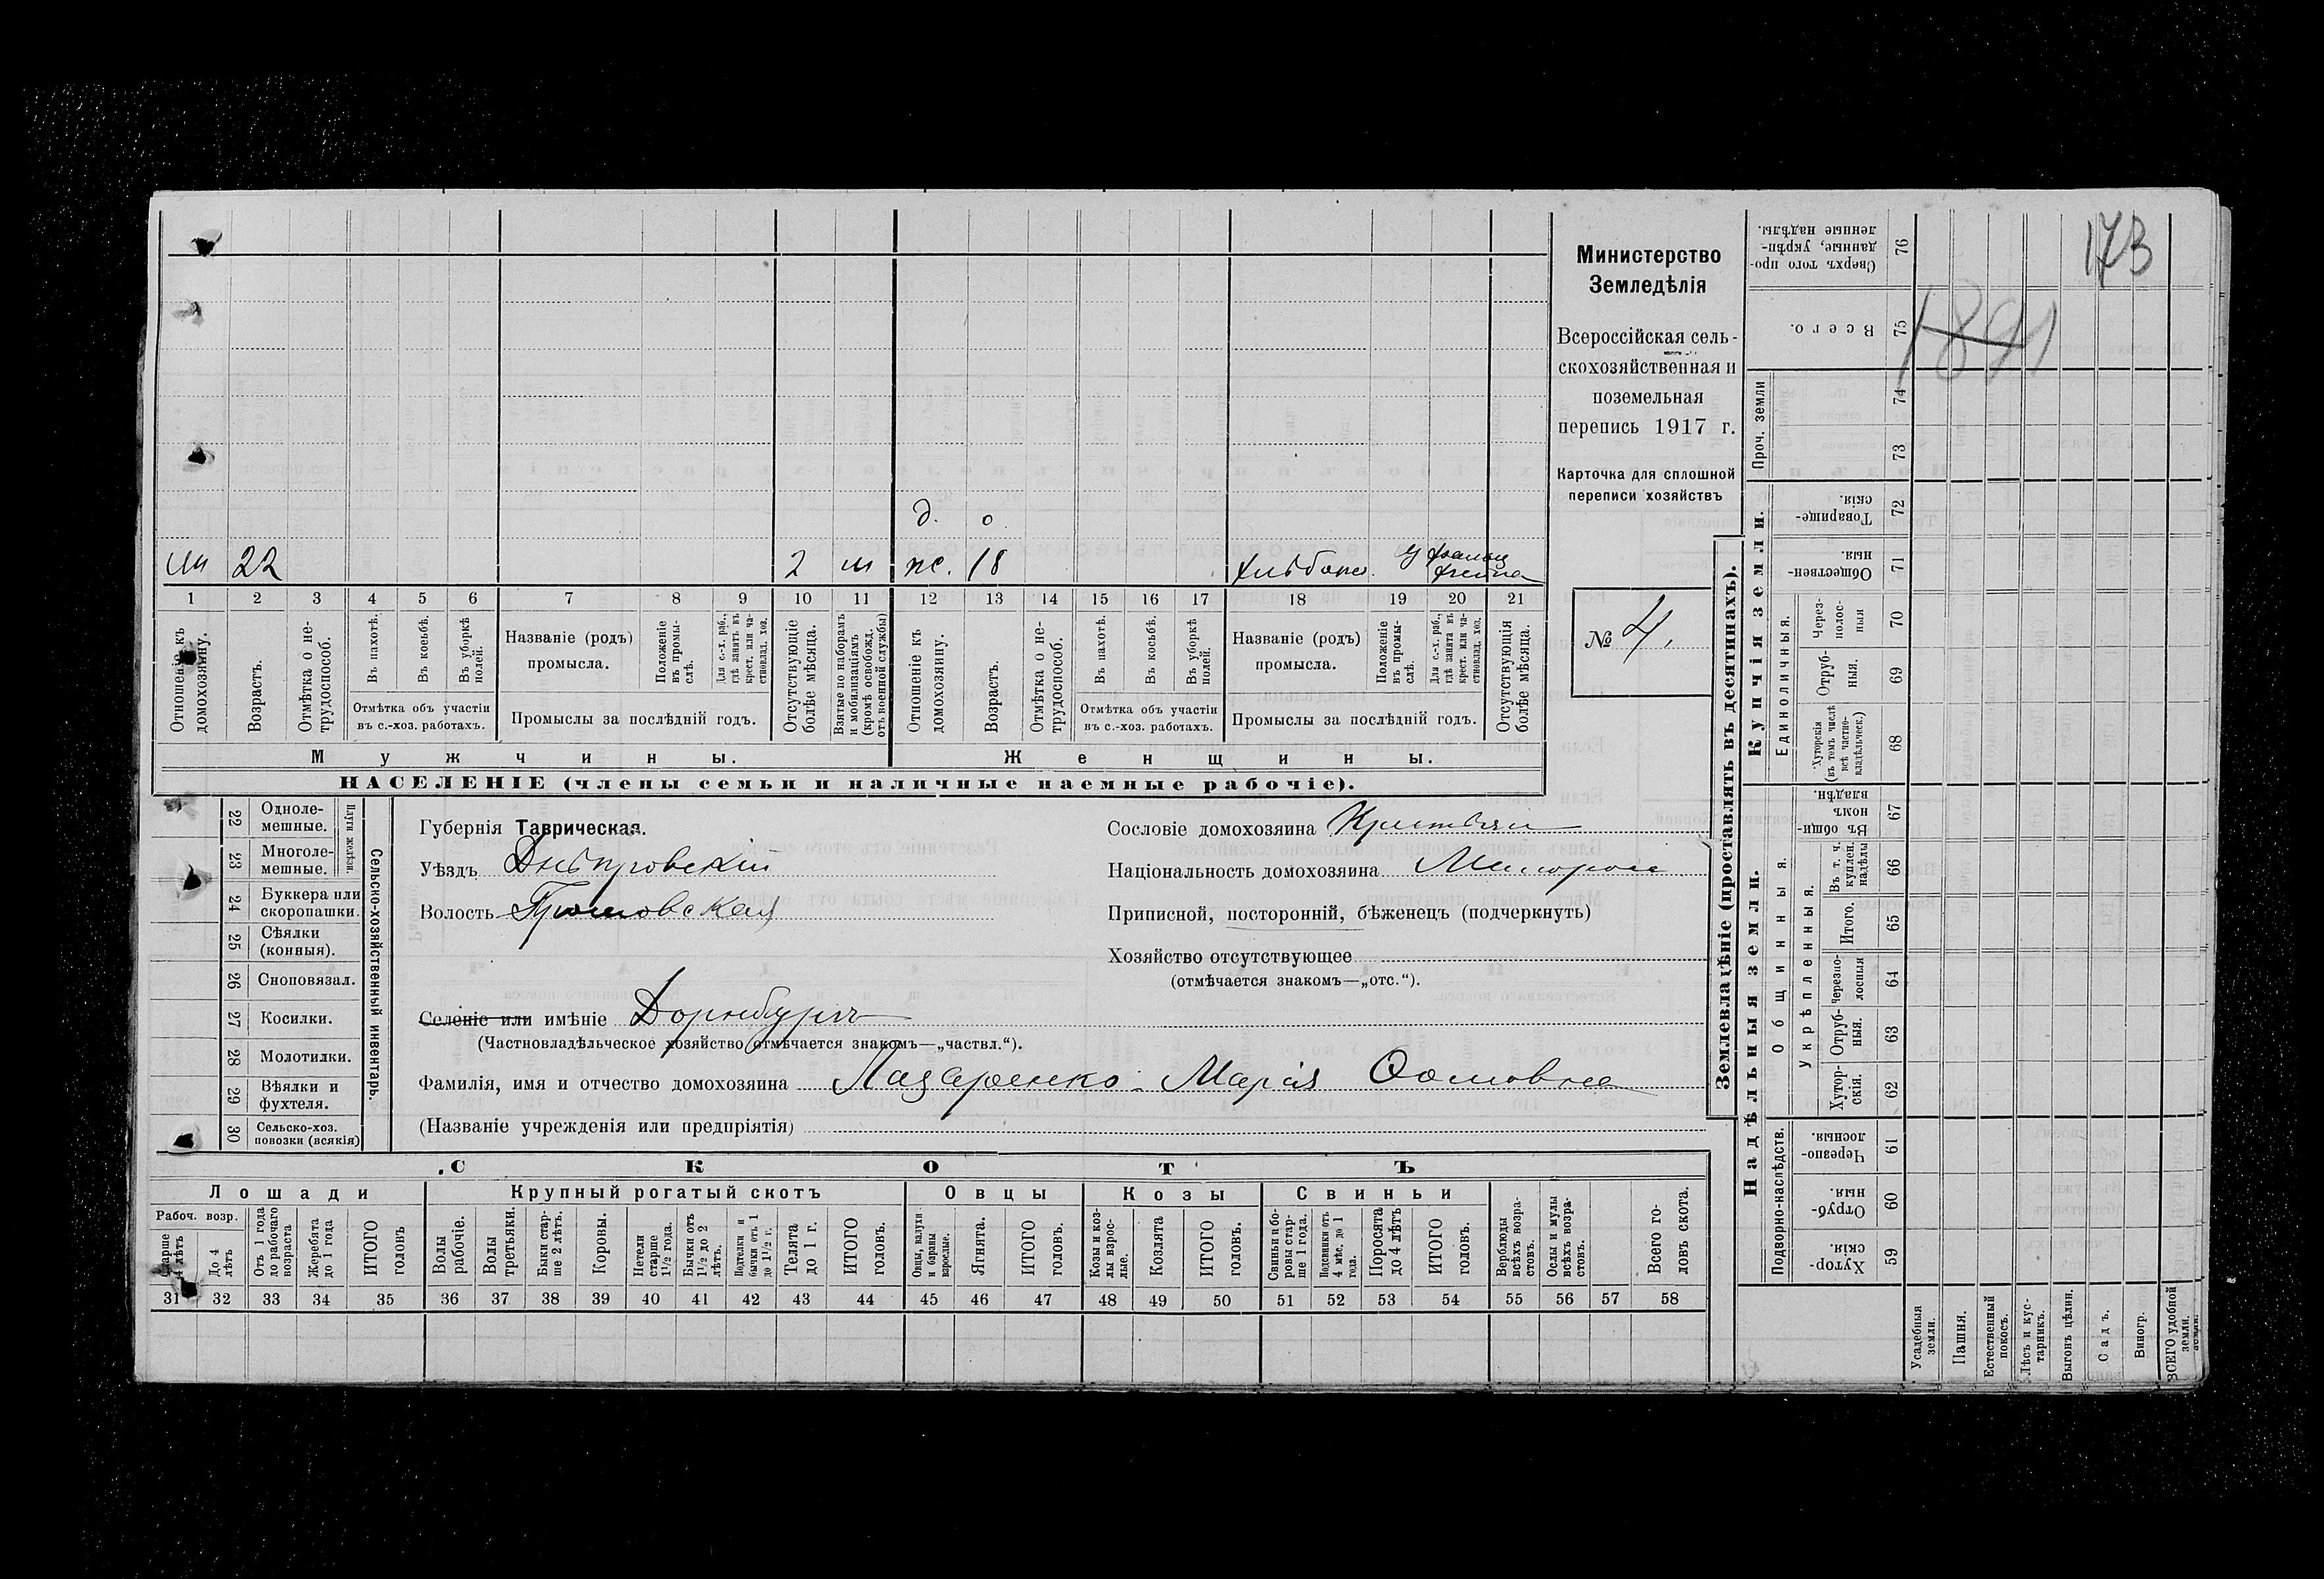 173
1891
Министерство
Земледѣлія
Всероссійская сель-
скохозяйственная и
поземельная
перепись 1917 г.
Карточка для сплошной
переписи хозяйствъ
№ 4.
д. о
22 2 м ж. 18
1 2 3 4 5 6 7 8 9 10 11 12 13 14 15 16 17 18 19 20 21
Отношеніе къ домохозяину.
Возрастъ.
Отмѣтка о не-
трудоспособ.
Въ пахотѣ.
Въ косьбѣ.
Въ уборкѣ
полей.
Отмѣтка объ участіи
въ с.-хоз. работахъ.
Названіе (родъ)
промысла.
Положеніе
въ промы-
слѣ.
Для с.-х. раб.,
гдѣ занятъ въ
крест. или ча-
стновлад. хоз.
Промыслы за послѣдній годъ.
Отсутствующіе
болѣе мѣсяца.
Взятые по наборамъ
и мобилизаціямъ
(кромѣ освобожд.
отъ военной службы)
Отношеніе къ
домохозяину.
Возрастъ.
Отмѣтка о не-
трудоспособ.
Въ пахотѣ.
Въ косьбѣ.
Въ уборкѣ
полей.
Отмѣтка объ участіи
въ с.-хоз. работахъ.
Названіе (родъ)
промысла.
Положеніе
въ промы-
слѣ.
Для с.-х. раб.,
гдѣ занята въ
крест. или ча-
стновлад. хоз.
Промыслы за послѣдній годъ.
Отсутствующія
болѣе мѣсяца.
Мужчины. Женщины.
НАСЕЛЕНІЕ (члены семьи и наличные наемные рабочіе).
Сельско-хозяйственный инвентарь.
Плуги желѣзн.
22 Одноле-
мешные.
23 Многоле-
мешные.
24 Буккера или
скоропашки.
25 Сѣялки
(конныя).
26 Сноповязал.
27 Косилки.
28 Молотилки.
29 Вѣялки и
фухтеля.
30 Сельско-хоз.
повозки (всякія)
Губернія Таврическая.
Уѣздъ Днѣпровскій
Волость Громовская
Селеніе или имѣніе Дорнбургъ
(Частновладѣльческое хозяйство отмѣчается знакомъ—„частвл.“).
Фамилія, имя и отчество домохозяина Лазаренко Марія Фомовна
(Названіе учрежденія или предпріятія)
Сословіе домохозяина
Національность домохозяина Малоросс
Приписной, посторонній, бѣженецъ (подчеркнуть)
Хозяйство отсутствующее
(отмѣчается знакомъ—„отс.“).
СКОТЪ
Лошади
Крупный рогатый скотъ
Овцы
Козы
Свиньи
Рабоч. возр.
Старше
4 лѣтъ
До 4
лѣтъ
Отъ 1 года
до рабочаго
возраста
Жеребята
до 1 года
ИТОГО
головъ
Волы
рабочіе.
Волы
третьяки.
Быки стар-
ше 2 лѣтъ.
Коровы.
Нетели
старше
1½ года.
Бычки отъ
1½ до 2
лѣтъ.
Подтелки и
бычки отъ 1
до 1½ г.
Телята
до 1 г.
ИТОГО
головъ.
Овцы, валухи
и бараны
взрослые.
Ягнята.
ИТОГО
головъ.
Козы и коз-
лы взрос-
лые.
Козлята
ИТОГО
головъ.
Свиньи и бо-
ровы стар-
ше 1 года.
Подсвинки отъ
4 мѣс. до 1
года.
Поросята
до 4 лѣтъ
ИТОГО
головъ.
Верблюды
всѣхъ возра-
стовъ.
Ослы и мулы
всѣхъ возра-
стовъ.
Всего го-
ловъ скота.
31 32 33 34 35 36 37 38 39 40 41 42 43 44 45 46 47 48 49 50 51 52 53 54 55 56 57 58
Землевладѣніе (проставлять въ десятинахъ).
Купчія земли.
Надѣльныя земли.
Проч. земли
Единоличныя.
Общинныя.
Укрѣпленныя.
Подворно-наслѣдств.
Сверхъ того про-
данные, укрѣп-
ленные надѣлы. 76
Всего. 75
74
73
Товарище-
скія. 72
Обществен-
ныя. 71
Через-
полос-
ныя 70
Отруб-
ныя. 69
Хуторскія
(въ томъ числѣ
всѣ частно-
владѣльческ.) 68
Въ общи-
номъ
владѣн. 67
Въ т. ч.
куплен.
надѣлы 66
Итого. 65
Черезпо-
лосныя 64
Отруб-
ныя. 63
Хутор-
скія. 62
Черезпо-
лосныя. 61
Отруб-
ныя. 60
Хутор-
скія. 59
Усадебныя
земли.
Пашня.
Естественный
покосъ.
Лѣсъ и кус-
тарникъ.
Выгонъ цѣлин.
Садъ.
Виногр.
ВСЕГО удобной
земли.